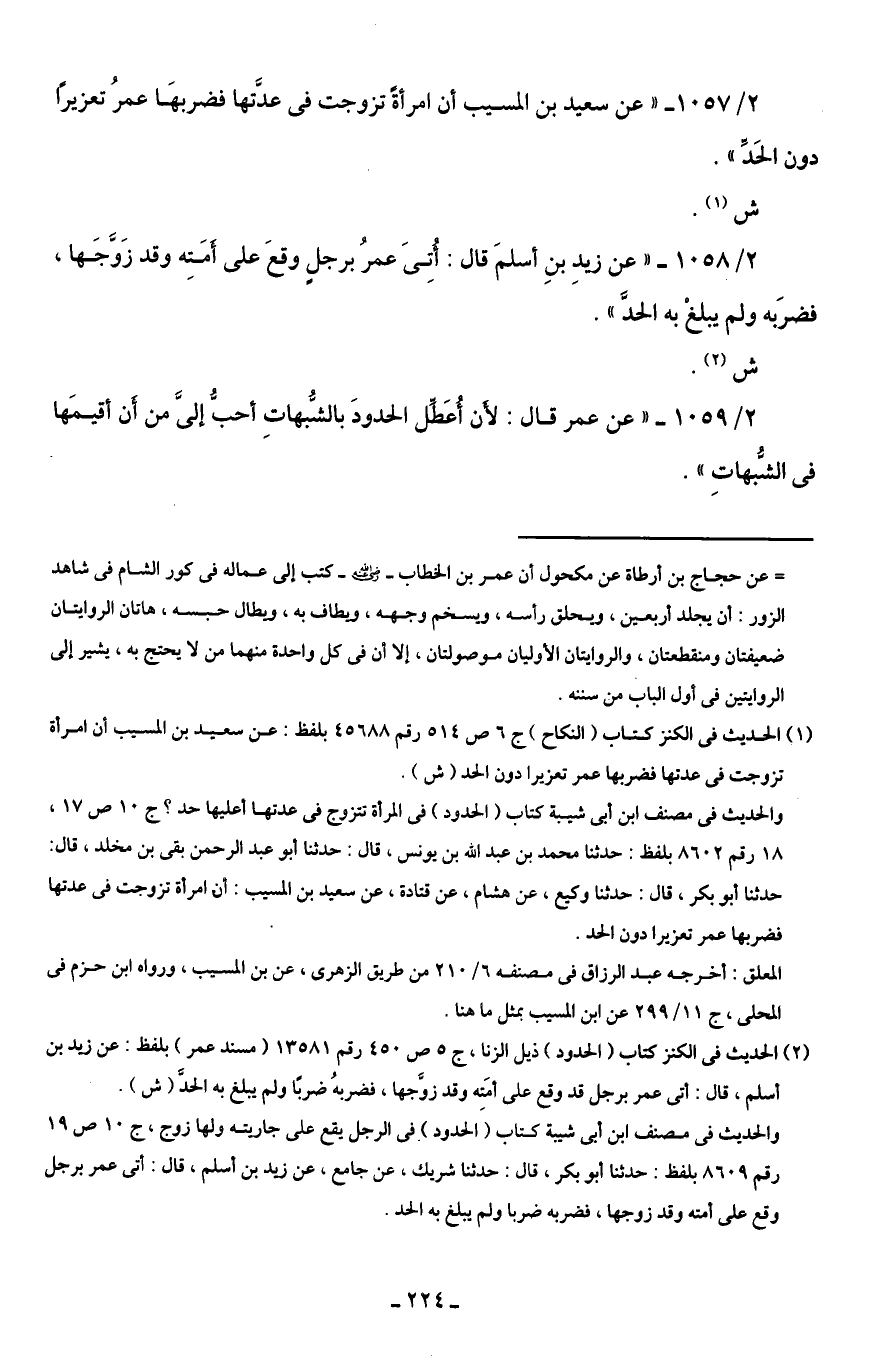 ٢/ ١٠٥٧ـ « عن سعيد بن المسيب أن امرأةً تزوجت فى عدَّتها فضربهَا عمرُ تعزيرًا
دون الحَدِّ » .
ش (١) .
٢/ ١٠٥٨ ـ « عن زيدِ بنِ أسلمَ قال : أُتِىَ عمرُ برجلٍ وقعَ على أَمَتِه وقد زَوَّجَها ،
فضربَه ولم يبلغْ به الحدَّ » .
ش (٢) .
٢/ ١٠٥٩ ـ « عن عمر قال : لأن أُعَطِّل الحدودَ بالشُّبهاتِ أحبُّ إلىَّ من أَن أقيمَها
فى الشُّبهاتِ » .
= عن حجاج بن أرطاة عن مكحول أن عمر بن الخطاب ـ رضي الله عنه ـ كتب إلى عماله فى كور الشام فى شاهد
الزور : أن يجلد أربعين ، ويحلق رأسه ، ويسخم وجهه ، ويطاف به ، ويطال حبسه ، هاتان الروايتان
ضعيفتان ومنقطعتان ، والروايتان الأوليان موصولتان ، إلا أن فى كل واحدة منهما من لا يحتج به ، يشير إلى
الروايتين فى أول الباب من سننه .
(١) الحديث فى الكنز كتاب ( النكاح ) ج ٦ ص ٥١٤ رقم ٤٥٦٨٨ بلفظ : عن سعيد بن المسيب أن امرأة
تزوجت فى عدتها فضربها عمر تعزيرا دون الحد ( ش ) .
والحديث فى مصنف ابن أبى شيبة كتاب ( الحدود ) فى المرأة تتزوج فى عدتها أعليها حد ؟ ج ١٠ ص ١٧ ،
١٨ رقم ٨٦٠٢ بلفظ : حدثنا محمد بن عبد الله بن يونس ، قال : حدثنا أبو عبد الرحمن بقى بن مخلد ، قال:
حدثنا أبو بكر ، قال : حدثنا وكيع ، عن هشام ، عن قتادة ، عن سعيد بن المسيب : أن امرأة تزوجت فى عدتها
فضربها عمر تعزيرا دون الحد .
المعلق : أخرجه عبد الرزاق فى مصنفه ٦/ ٢١٠ من طريق الزهرى ، عن بن المسيب ، ورواه ابن حزم فى
المحلى ، ج ١١/ ٢٩٩ عن ابن المسيب بمثل ما هنا .
(٢) الحديث فى الكنز كتاب ( الحدود ) ذيل الزنا ، ج ٥ ص ٤٥٠ رقم ١٣٥٨١ ( مسند عمر ) بلفظ : عن زيد بن
أسلم ، قال : أتى عمر برجل قد وقع على أمَته وقد زوَّجها ، فضربهُ ضربًا ولم يبلغ به الحدَّ ( ش ) .
والحديث فى مصنف ابن أبى شيبة كتاب ( الحدود ) فى الرجل يقع على جاريته ولها زوج ، ج ١٠ ص ١٩
رقم ٨٦٠٩ بلفظ : حدثنا أبو بكر ، قال : حدثنا شريك ، عن جامع ، عن زيد بن أسلم ، قال : أتى عمر برجل
وقع على أمته وقد زوجها ، فضربه ضربا ولم يبلغ به الحد .
ـ ٢٢٤ ـ